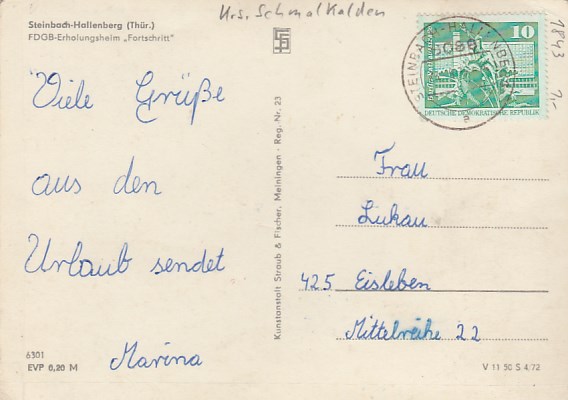 Krs. Schmalkalden
Steinbach-Hallenberg (Thür.)
FDGB-Erholungsheim „Fortschritt"
Viele Grüße
aus den
Urlaub sendet
Marina
6301
EVP 0,20 M
Kunstanstalt Straub & Fischer, Meiningen · Reg. Nr. 23
10
DEUTSCHE DEMOKRATISCHE REPUBLIK
STEINBACH-HALLENBERG
1843
1,-
Frau
Lukau
425 Eisleben
Mittelreihe 22
V 11 50 S 4/72